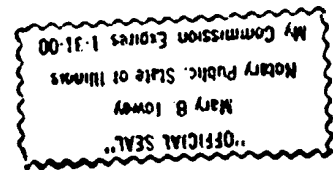 "OFFICIAL SEAL"
Mary B. Towey
Notary Public, State of Illinois
My Commission Expires 1-31-00